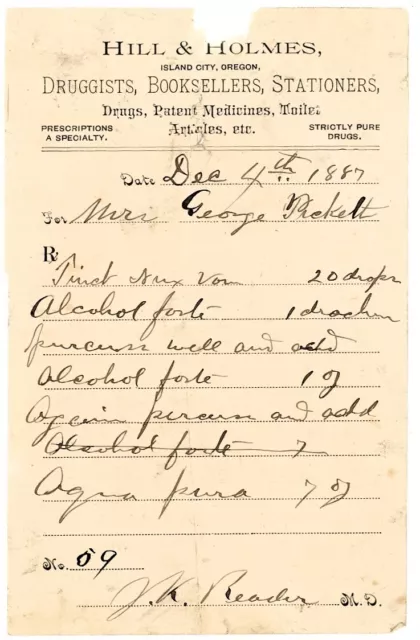 HILL & HOLMES,
ISLAND CITY, OREGON,
DRUGGISTS, BOOKSELLERS, STATIONERS,
Drugs, Patent Medicines, Toilet
Articles, etc.
PRESCRIPTIONS
A SPECIALTY.
STRICTLY PURE
DRUGS.
Date Dec 4th 1887
For Mrs George Pickett
℞
Tinct Nux Vom 20 drops
Alcohol forte 1 drachm
purcuss well and add
Alcohol forte 1 oz
Again percuss and add
Alcohol forte 7
Aqua pura 7 oz
No. 59
J. K. Reader M. D.